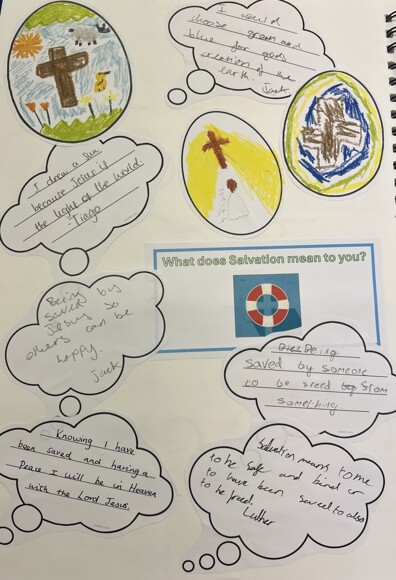 I would
choose green and
blue for gods
creation of the
earth. Jack
I drew a sun
because Jesus is
the light of the world.
-Tiago
What does Salvation mean to you?
Being
saved by
Jesus so
others can be
happy.
Jack
Being
saved by someone
to be freed from
something.
Knowing I have
been saved and having a
Peace I will be in Heaven
with the Lord Jesus.
Salvation means to me
to be safe and
to have been saved to also
to be freed.
Luther